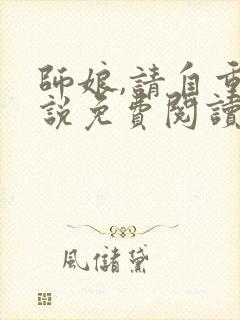 師娘,請自重
說免費閱讀
風儲黛